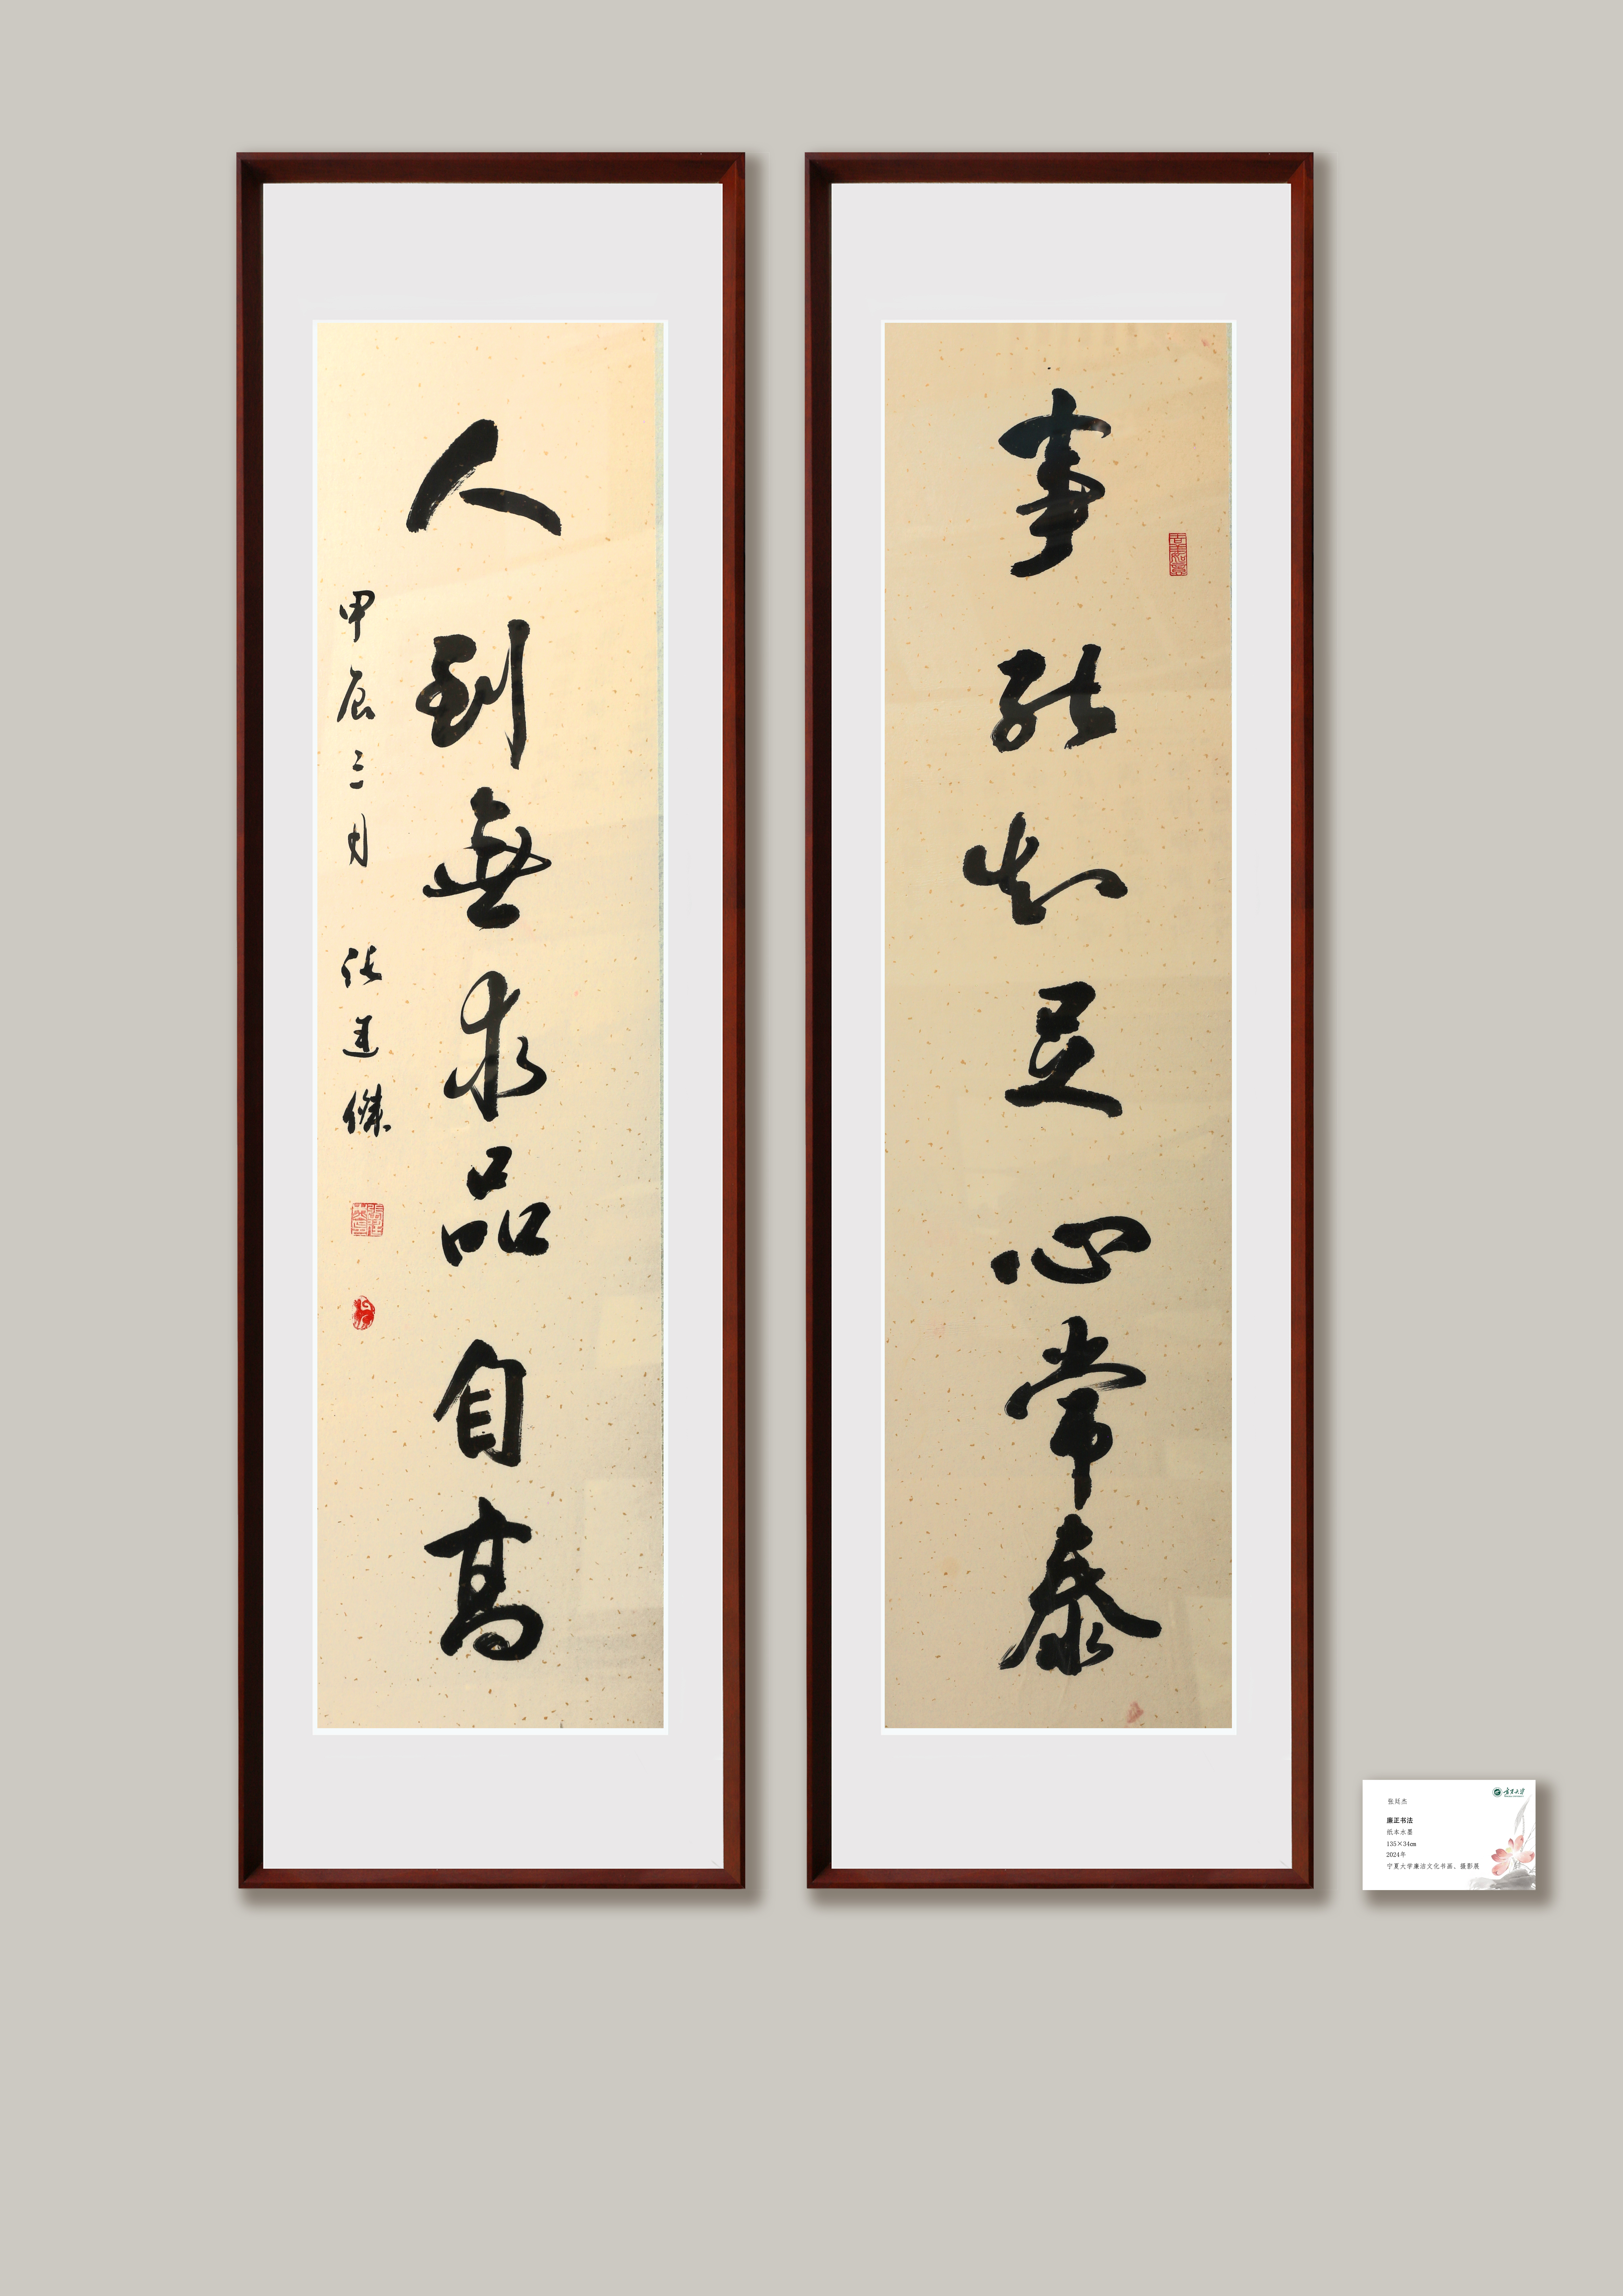 事能知足心常泰
人到無求品自高
甲辰三月 张廷傑
宁夏大学
张廷杰
廉正书法
纸本水墨
135×34㎝
2024年
宁夏大学廉洁文化书画、摄影展